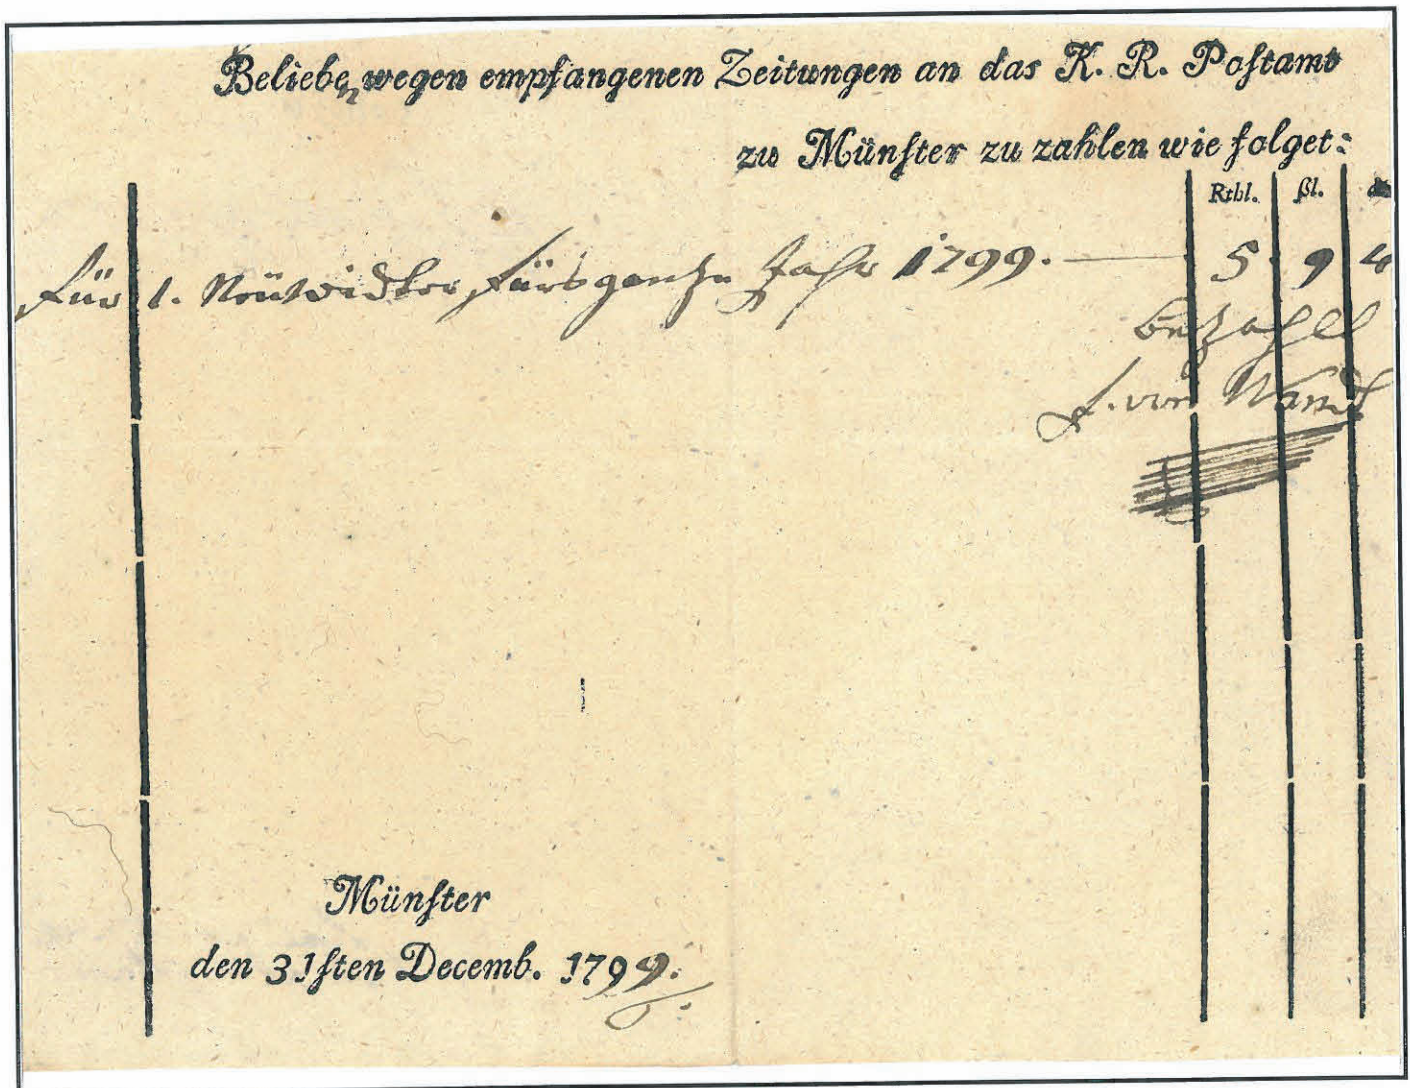 Belieben wegen empfangenen Zeitungen an das K. R. Postamt
zu Münster zu zahlen wie folget:
Rthl. ßl.
für 1. Neüwidter fürs ganze Jahr 1799. — 5. 9 4
bezahlt
F. von
Münster
den 31sten Decemb. 1799.